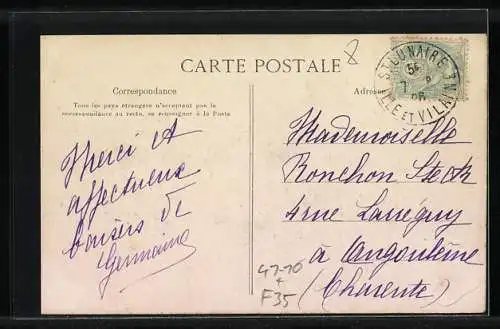 8
CARTE POSTALE
Correspondance
Tous les pays étrangers n'acceptent pas la
correspondance au recto, se renseigner à la Poste
Merci et
affectueux
baisers de
Germaine
Adresse
St LUNAIRE
ILLE ET VILAINE
Mademoiselle
Ronchon
4 rue Larréguy
à Angoulême
(Charente)
47-10
+
F35